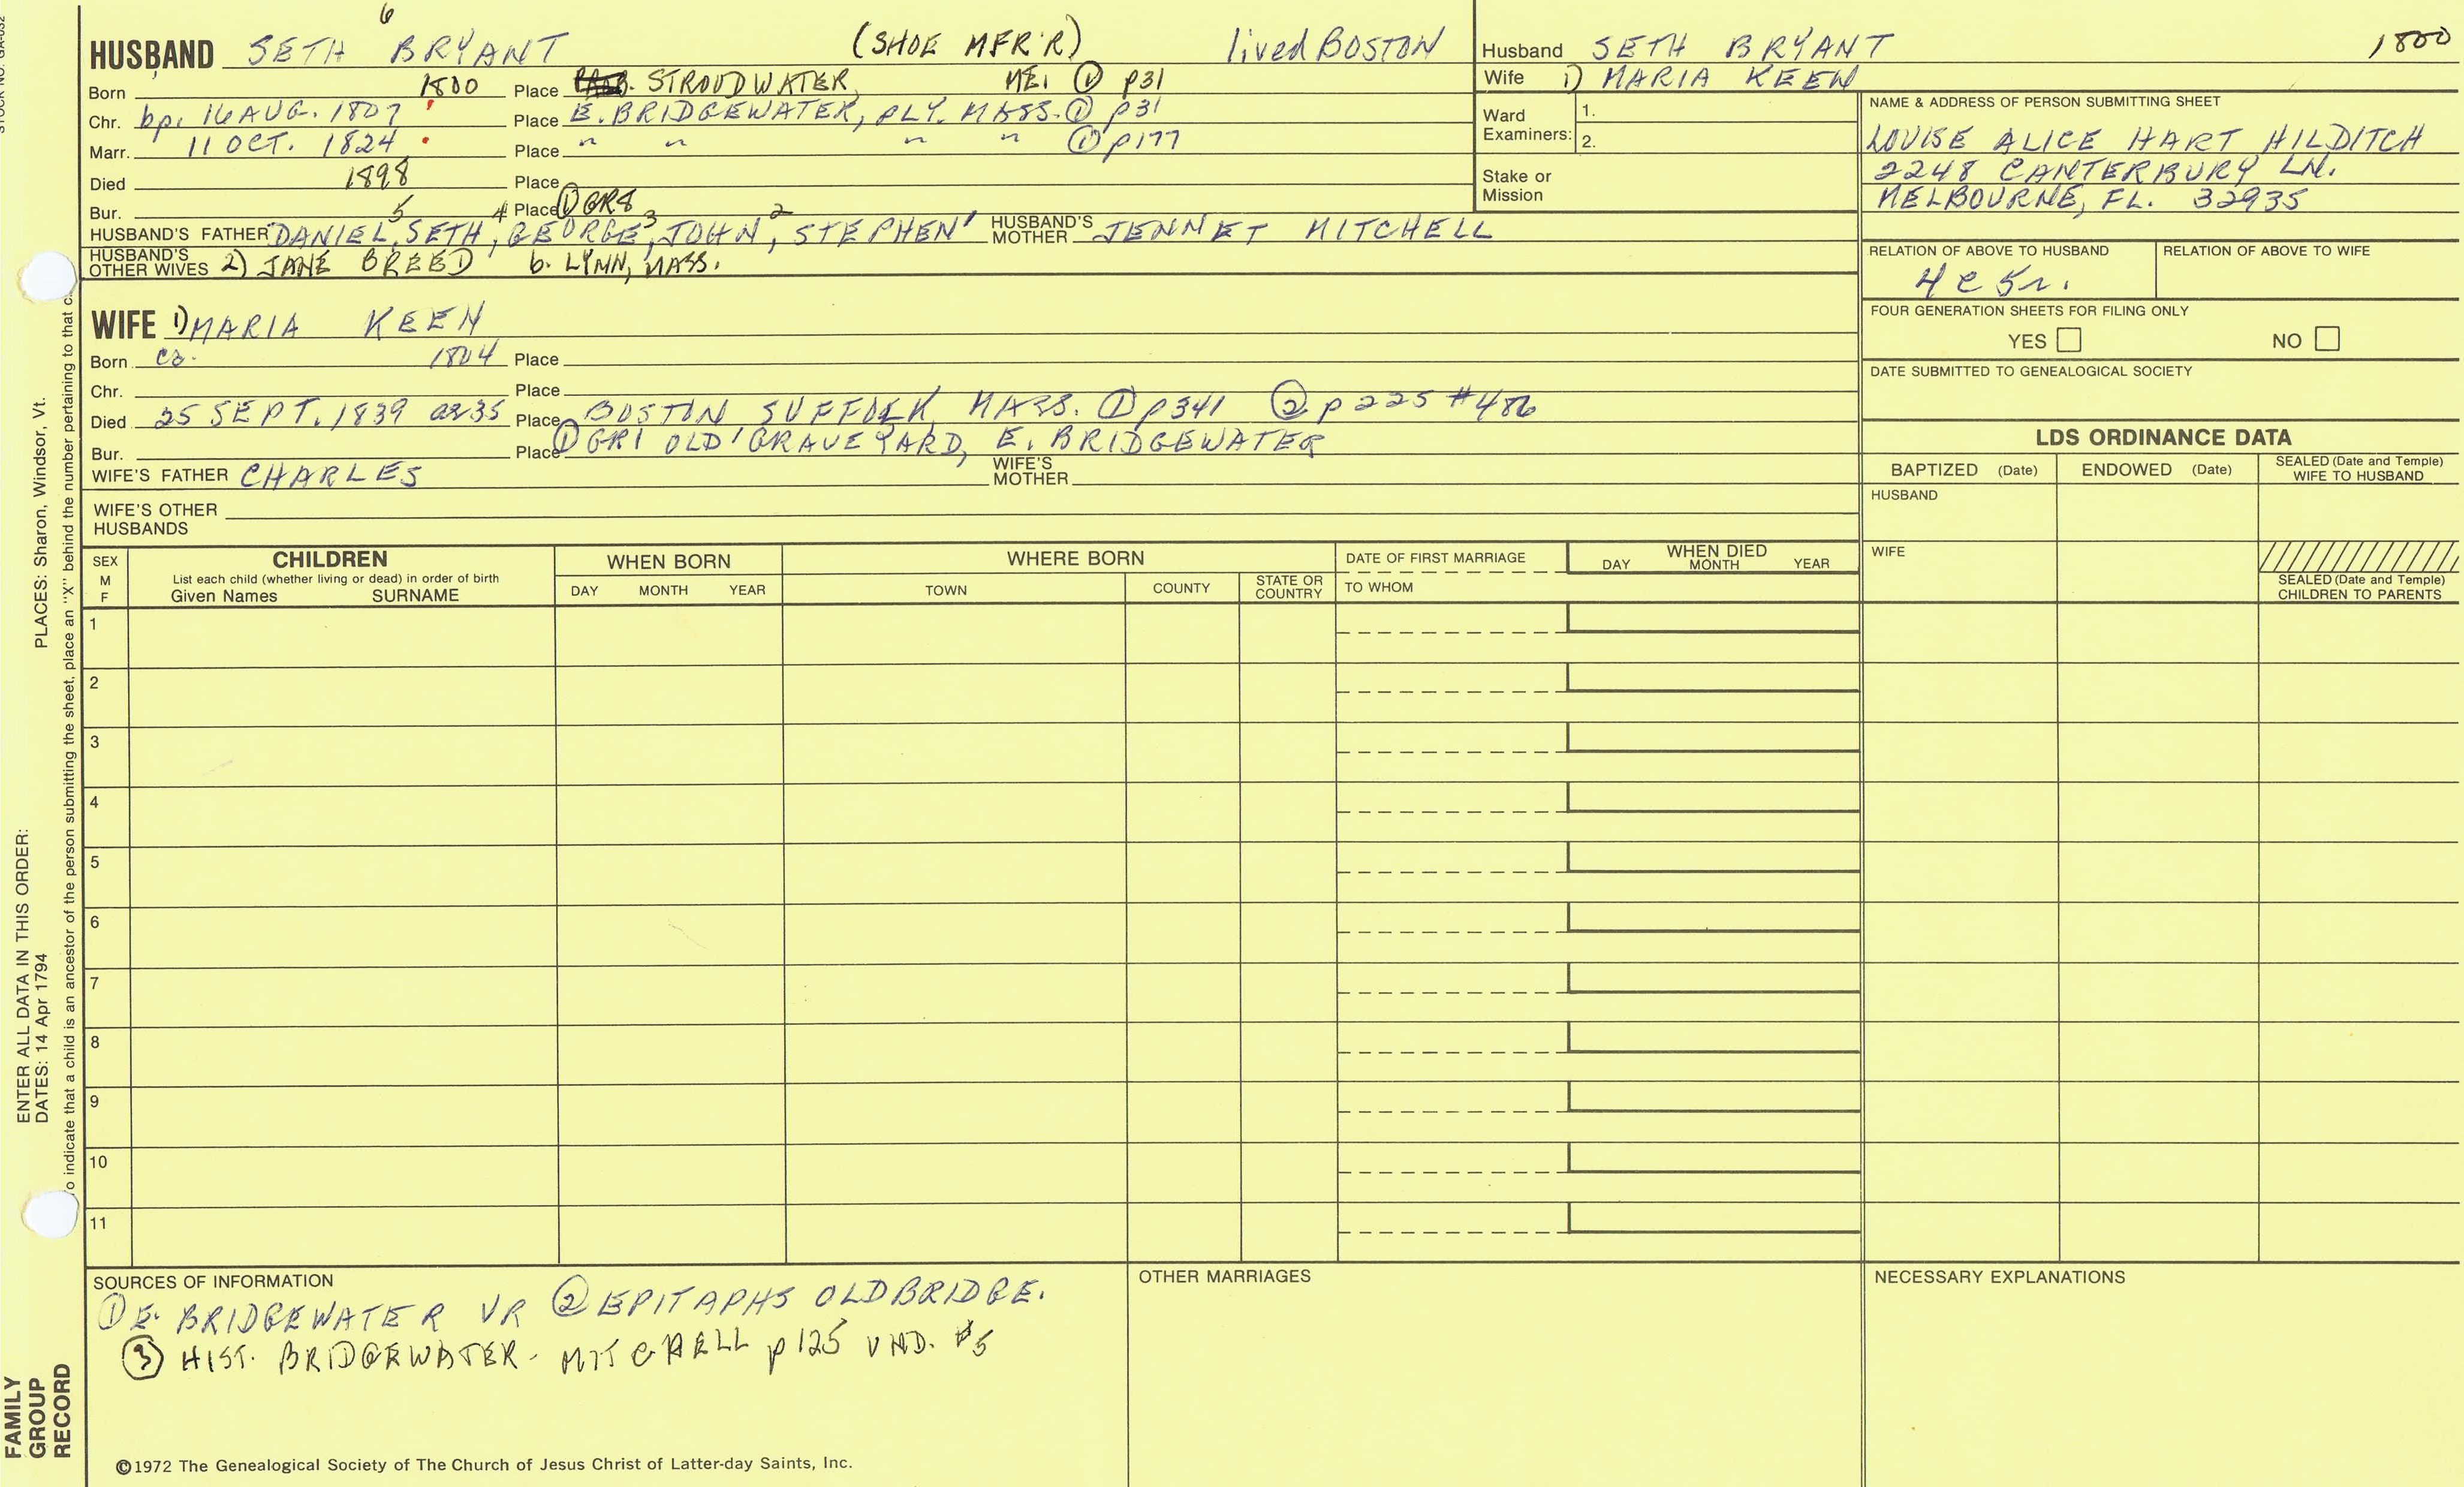 6
HUSBAND SETH BRYANT (SHOE MFR'R) lived BOSTON
Born 1800 Place STROUDWATER, ME. ① p31
Chr. bp. 16 AUG. 1807 Place E. BRIDGEWATER, PLY. MASS. ① p31
Marr. 11 OCT. 1824 Place " " " " ① p177
Died 1898 Place
Bur. Place ① GR8
HUSBAND'S FATHER DANIEL5, SETH4, GEORGE3, JOHN2, STEPHEN1 HUSBAND'S MOTHER JENNET MITCHELL
HUSBAND'S OTHER WIVES 2) JANE BREED b. LYNN, MASS.
WIFE 1) MARIA KEEN
Born ca. 1804 Place
Chr. Place
Died 25 SEPT. 1839 ae 35 Place BOSTON SUFFOLK, MASS. ① p341 ② p225 #486
Bur. Place ① GR1 OLD GRAVEYARD, E. BRIDGEWATER
WIFE'S FATHER CHARLES WIFE'S MOTHER
WIFE'S OTHER HUSBANDS
Husband SETH BRYANT 1800
Wife 1) MARIA KEEN
Ward Examiners: 1.
2.
Stake or Mission
NAME & ADDRESS OF PERSON SUBMITTING SHEET
LOUISE ALICE HART HILDITCH
2248 CANTERBURY LN.
MELBOURNE, FL. 32935
RELATION OF ABOVE TO HUSBAND RELATION OF ABOVE TO WIFE
4 c 5 r.
FOUR GENERATION SHEETS FOR FILING ONLY
YES NO
DATE SUBMITTED TO GENEALOGICAL SOCIETY
LDS ORDINANCE DATA
BAPTIZED (Date) ENDOWED (Date) SEALED (Date and Temple) WIFE TO HUSBAND
HUSBAND
WIFE
SEALED (Date and Temple) CHILDREN TO PARENTS
SEX M F
CHILDREN
List each child (whether living or dead) in order of birth
Given Names SURNAME
WHEN BORN
DAY MONTH YEAR
WHERE BORN
TOWN COUNTY STATE OR COUNTRY
DATE OF FIRST MARRIAGE
TO WHOM
WHEN DIED
DAY MONTH YEAR
1
2
3
4
5
6
7
8
9
10
11
SOURCES OF INFORMATION
① E. BRIDGEWATER VR ② EPITAPHS OLD BRIDGE.
③ HIST. BRIDGEWATER - MITCHELL p125 UND. #5
OTHER MARRIAGES
NECESSARY EXPLANATIONS
©1972 The Genealogical Society of The Church of Jesus Christ of Latter-day Saints, Inc.
FAMILY GROUP RECORD
ENTER ALL DATA IN THIS ORDER:
DATES: 14 Apr 1794 PLACES: Sharon, Windsor, Vt.
o indicate that a child is an ancestor of the person submitting the sheet, place an "X" behind the number pertaining to that c